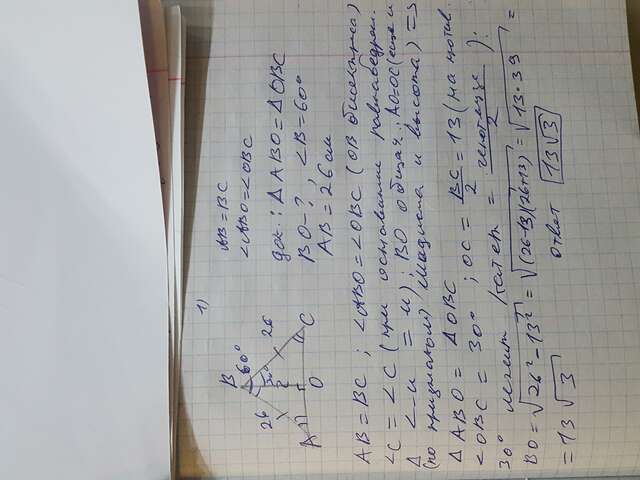 1)
B
60°
30°
26
26
A
O
C
AB=BC
∠ABO=∠OBC
док.: ΔABO=ΔOBC
BO-?, ∠B=60°
AB=26см
AB=BC; ∠ABO=∠OBC (OB биссектриса)
∠C=∠C (при основание равнабедрен.
Δ ∠-и = и); BO общая; AO=OC (еще и
(по признакам) медиана и высота) =>
ΔABO = ΔOBC
∠OBC = 30°; OC = BC/2 = 13 (на против.
30° лежит катет = гепотенузе/2):
BO=√26²-13² = √(26-13)(26+13) = √13·39 =
= 13√3
ответ 13√3